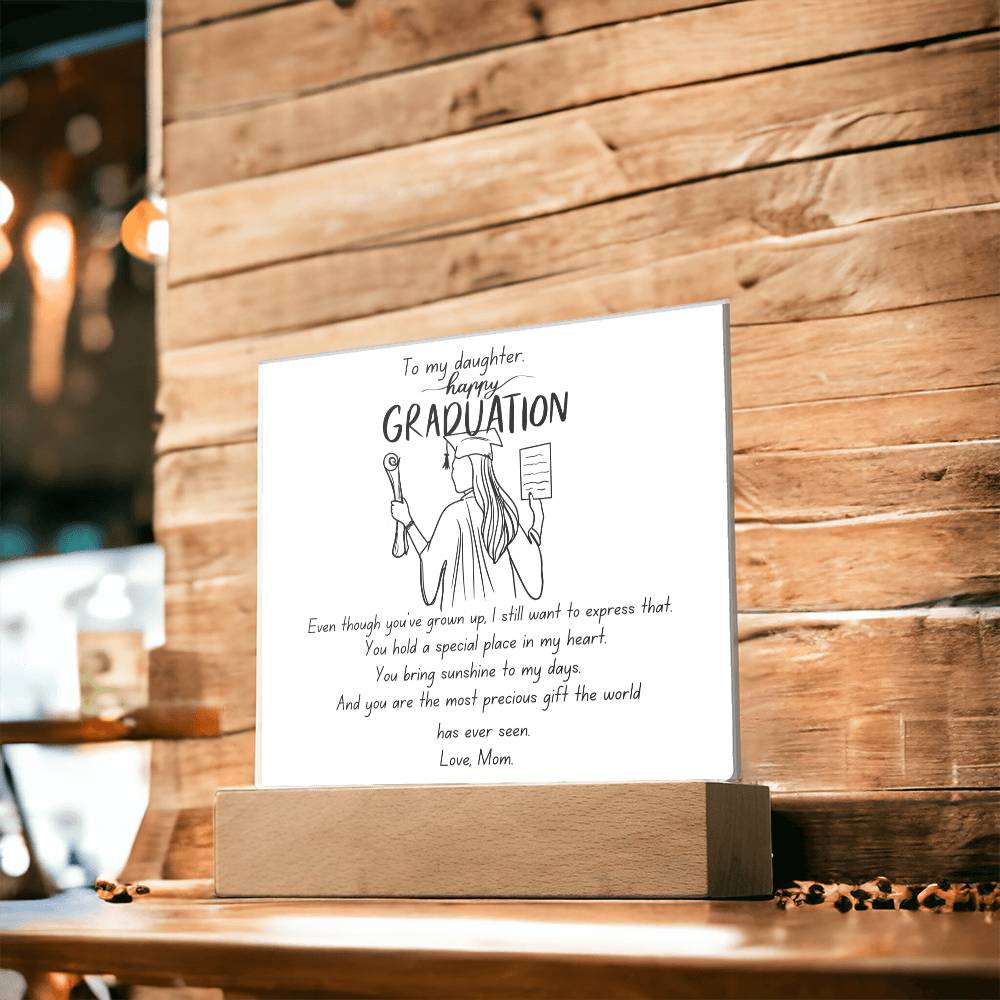 To my daughter.
happy
GRADUATION
Even though you've grown up, I still want to express that.
You hold a special place in my heart.
You bring sunshine to my days.
And you are the most precious gift the world
has ever seen.
Love, Mom.